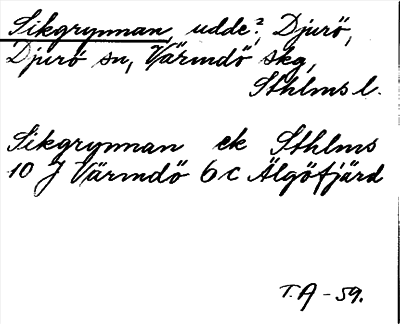 Sikgrynnan, udde?, Djurö,
Djurö sn, Värmdö skg,
Sthlms l.
Sikgrynnan ek Sthlms
10 J Värmdö 6 c Älgöfjärd
T.A - 59.